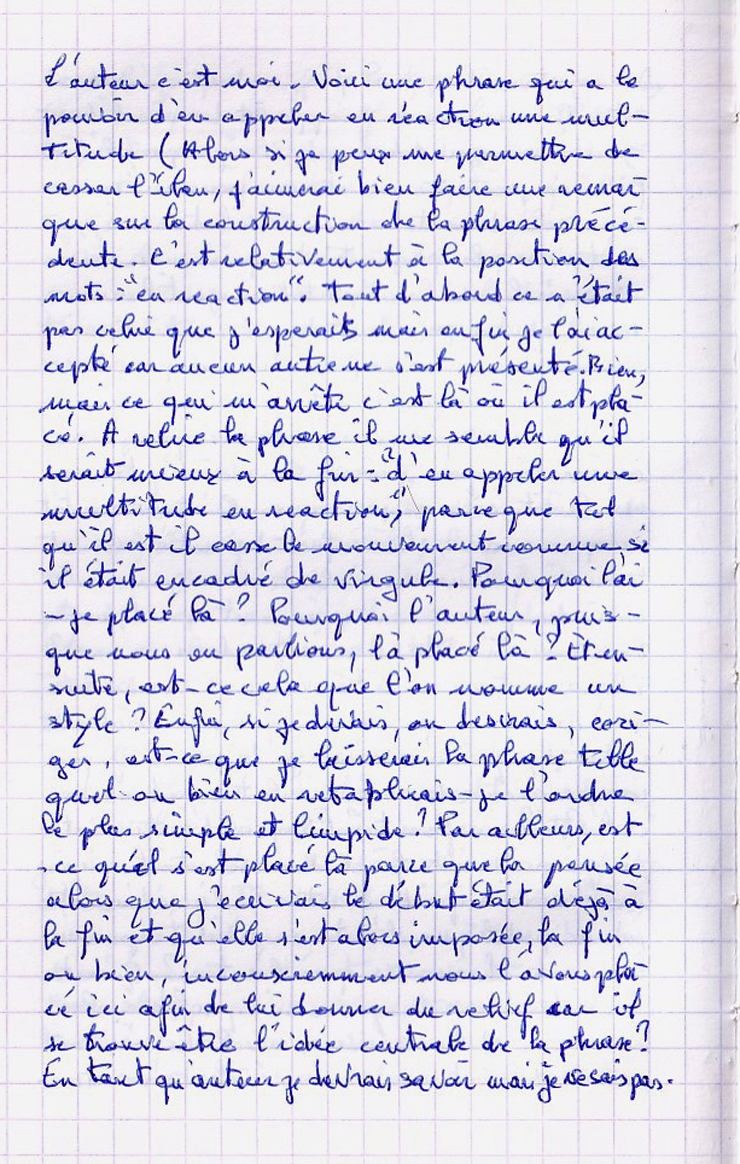 L'auteur c'est moi. Voici une phrase qui a le
pouvoir d'en appeler en réaction une mul-
titude (Alors si je peux me permettre de
casser l'élan, j'aimerai bien faire une remar
que sur la construction de la phrase précé-
dente. C'est relativement à la position des
mots : "en reaction". Tout d'abord ce n'était
pas celui que j'esperais mais enfin je l'ai ac-
cepté car aucun autre ne s'est présenté. Bien,
mais ce qui m'arrête c'est là où il est pla-
cé. A relire la phrase il me semble qu'il
serait mieux à la fin : "d'en appeler une
multitude en reaction", parce que tel
qu'il est il casse le mouvement comme si
il était encadré de virgule. Pourquoi l'ai
-je placé là ? Pourquoi l'auteur, puis-
que nous en parlions, l'a placé là ? Et en-
suite, est-ce cela que l'on nomme un
style ? Enfin, si je devais, ou desirais, cori-
ger, est-ce que je laisserais la phrase telle
quel ou bien en retablirais-je l'ordre
le plus simple et limpide ? Par ailleurs, est
-ce qu'il s'est placé là parce que la pensée
alors que j'ecrivais le début était déjà à
la fin et qu'elle s'est alors imposée, la fin
ou bien, inconsciemment nous l'avons pla
cé ici afin de lui donner du relief car il
se trouve être l'idée centrale de la phrase ?
En tant qu'auteur je devrais savoir mais je ne sais pas.